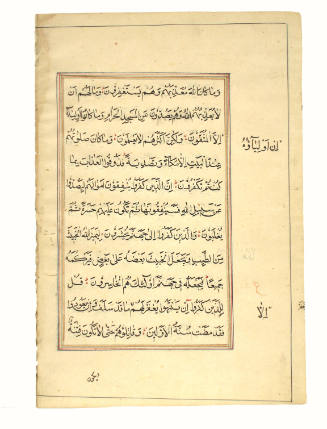 وَمَا كَانَ اللهُ مُعَذِّبَهُمْ وَهُمْ يَسْتَغْفِرُونَ وَمَا لَهُمْ اَنْ
لَا يُعَذِّبَهُمُ اللهُ وَهُمْ يَصُدُّونَ عَنِ الْمَسْجِدِ الْحَرَامِ وَمَا كَانُوا اَوْلِيَاءَهُ
اِنْ اَوْلِيَاؤُهُ
اِلَّا الْمُتَّقُونَ وَلٰكِنَّ اَكْثَرَهُمْ لَا يَعْلَمُونَ وَمَا كَانَ صَلٰوتُهُمْ
عِنْدَ الْبَيْتِ اِلَّا مُكَاءً وَتَصْدِيَةً فَذُوقُوا الْعَذَابَ بِمَا
كُنْتُمْ تَكْفُرُونَ اِنَّ الَّذِينَ كَفَرُوا يُنْفِقُونَ اَمْوَالَهُمْ لِيَصُدُّوا
عَنْ سَبِيلِ اللهِ فَسَيُنْفِقُونَهَا ثُمَّ تَكُونُ عَلَيْهِمْ حَسْرَةً ثُمَّ
يُغْلَبُونَ وَالَّذِينَ كَفَرُوا اِلٰى جَهَنَّمَ يُحْشَرُونَ لِيَمِيزَ اللهُ الْخَبِيثَ
مِنَ الطَّيِّبِ وَيَجْعَلَ الْخَبِيثَ بَعْضَهُ عَلٰى بَعْضٍ فَيَرْكُمَهُ
جَمِيعًا فَيَجْعَلَهُ فِي جَهَنَّمَ اُولٰئِكَ هُمُ الْخَاسِرُونَ قُلْ
لِلَّذِينَ كَفَرُوا اِنْ يَنْتَهُوا يُغْفَرْ لَهُمْ مَا قَدْ سَلَفَ وَاِنْ يَعُودُوا
فَقَدْ مَضَتْ سُنَّةُ الْاَوَّلِينَ وَقَاتِلُوهُمْ حَتّٰى لَا تَكُونَ فِتْنَةٌ